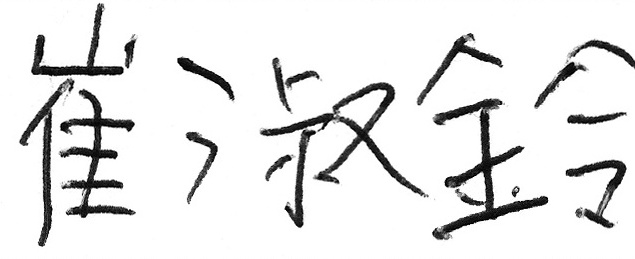 崔淑鈴